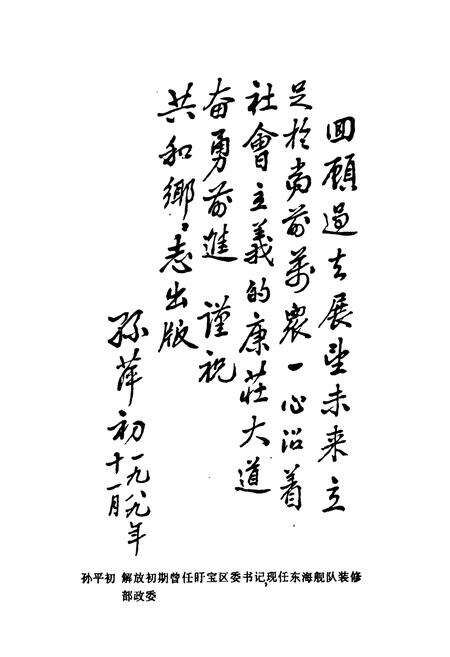 回顾過去展望未来立
足於当前萬衆一心沿着
社會主義的康莊大道
奋勇前進 谨祝
共和鄉志出版
孙萍初
一九八九年
十一月
孙平初 解放初期曾任盱宝区委书记,现任东海舰队装修
部政委